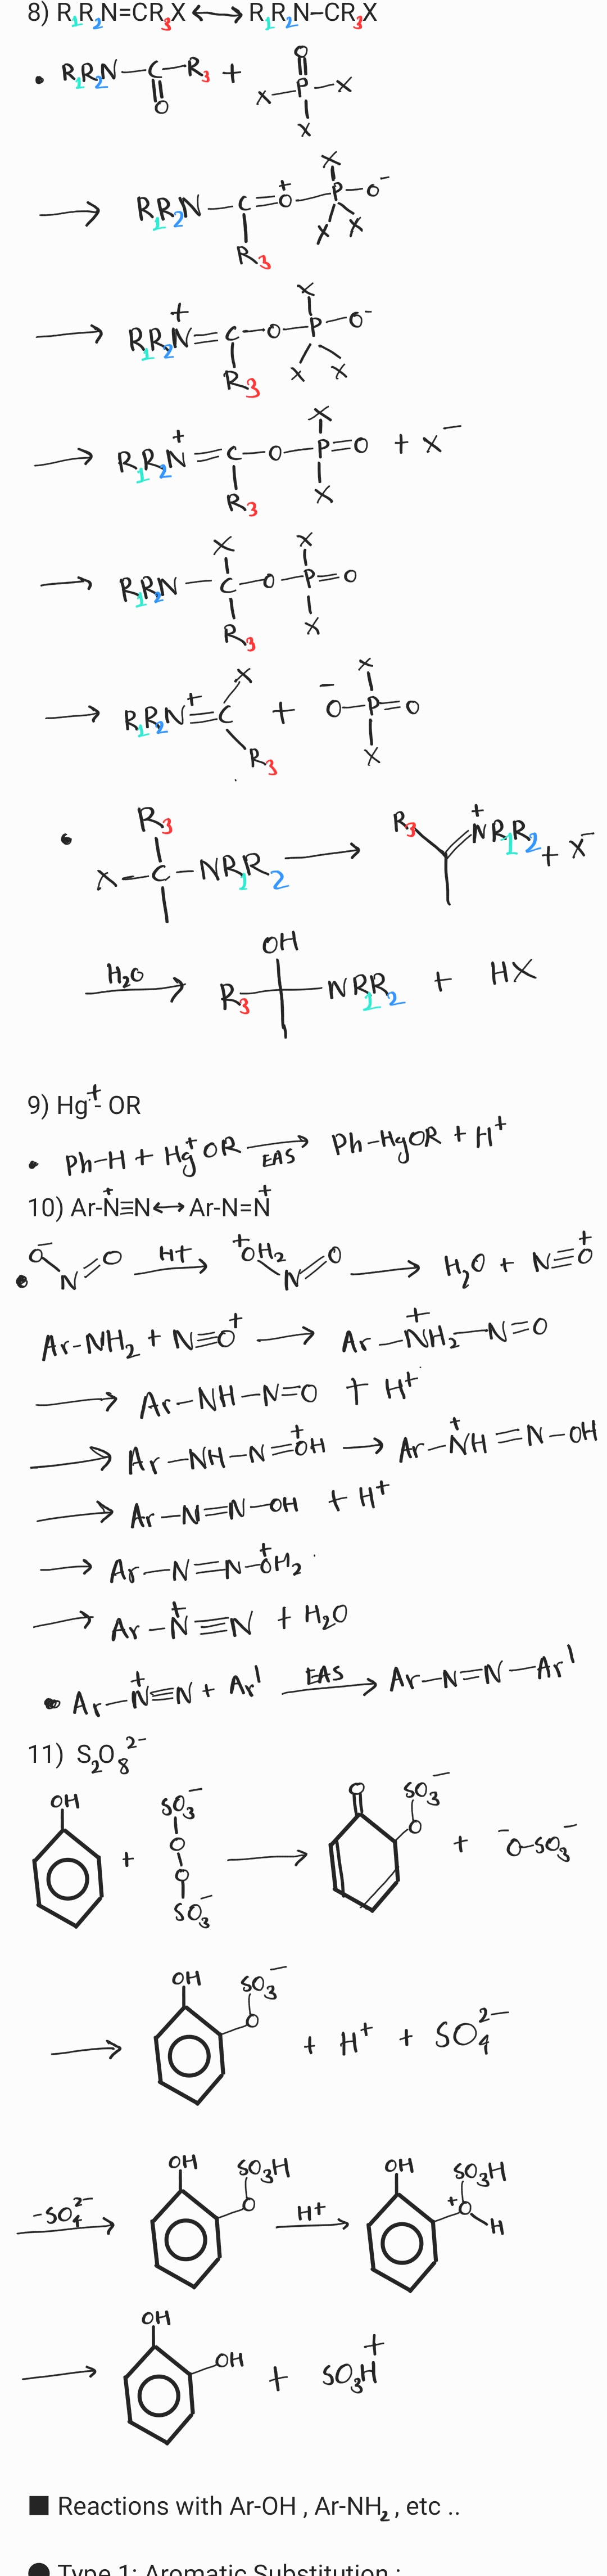 8) R₁R₂N=CR₃X ⟷ R₁R₂N–CR₃X
• R₁R₂N–C(=O)–R₃ + X–P(=O)(X)–X
→ R₁R₂N–C(R₃)=O⁺–P(X)(X)(X)–O⁻
→ R₁R₂N⁺=C(R₃)–O–P(X)(X)(X)–O⁻
→ R₁R₂N⁺=C(R₃)–O–P(X)(X)=O + X⁻
→ R₁R₂N–C(X)(R₃)–O–P(X)(X)=O
→ R₁R₂N⁺=C(X)(R₃) + ⁻O–P(X)(X)=O
• X–C(R₃)–NR₁R₂ → R₃ =N⁺R₁R₂ + X⁻
H₂O → R₃ OH NR₁R₂ + HX
9) Hg⁺- OR
• Ph-H + Hg⁺OR EAS→ Ph-HgOR + H⁺
10) Ar-N⁺≡N ⟷ Ar-N=N⁺
• O⁻–N=O H+→ ⁺OH₂–N=O → H₂O + N≡O⁺
Ar-NH₂ + N≡O⁺ → Ar–N⁺H₂–N=O
→ Ar–NH–N=O + H⁺
→ Ar–NH–N=O⁺H → Ar–N⁺H=N–OH
→ Ar–N=N–OH + H⁺
→ Ar–N=N–O⁺H₂
→ Ar–N⁺≡N + H₂O
• Ar–N⁺≡N + Ar' EAS→ Ar–N=N–Ar'
11) S₂O₈²⁻
OH + SO₃⁻ O O SO₃⁻ → O O SO₃⁻ + ⁻O–SO₃⁻
→ OH O SO₃⁻ + H⁺ + SO₄²⁻
-SO₄²⁻→ OH O SO₃H H+→ OH O⁺ H SO₃H
→ OH OH + SO₃H⁺
■ Reactions with Ar-OH , Ar-NH₂ , etc ..
● Type 1: Aromatic Substitution :